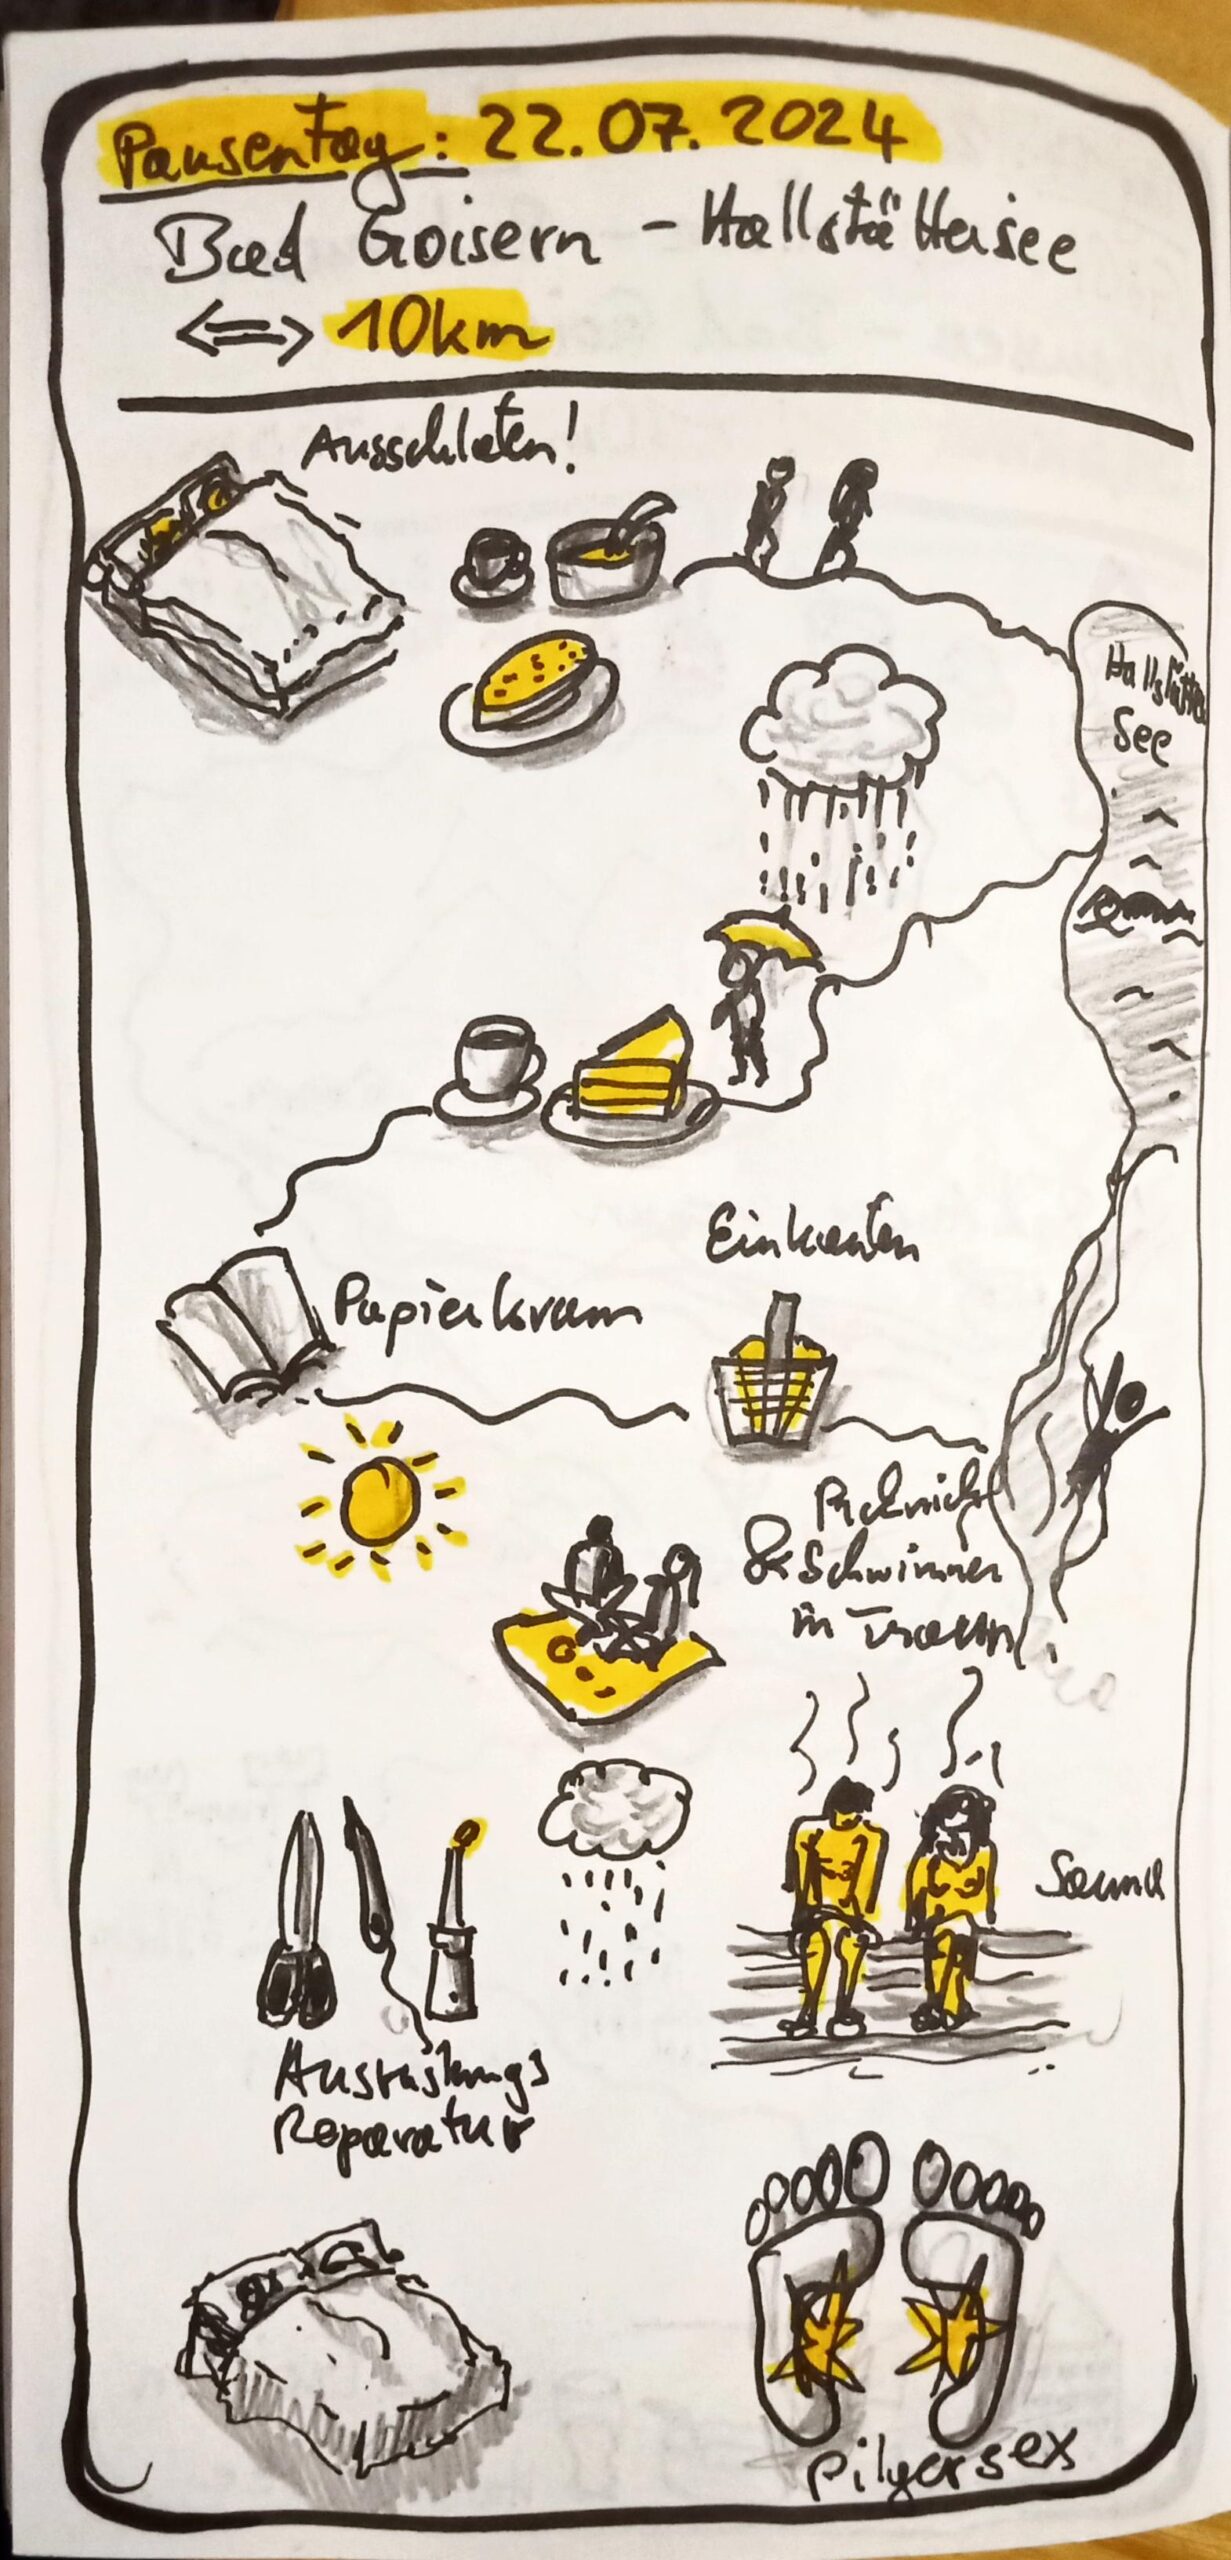 Pausentag: 22.07.2024
Bad Goisern - Hallstättersee
<=> 10km
Ausschlafen!
Hallstätter
See
Einkaufen
Papierkram
Picknick
& Schwimmen
in Traun
Sauna
Ausrüstungs
Reparatur
Pilgersex